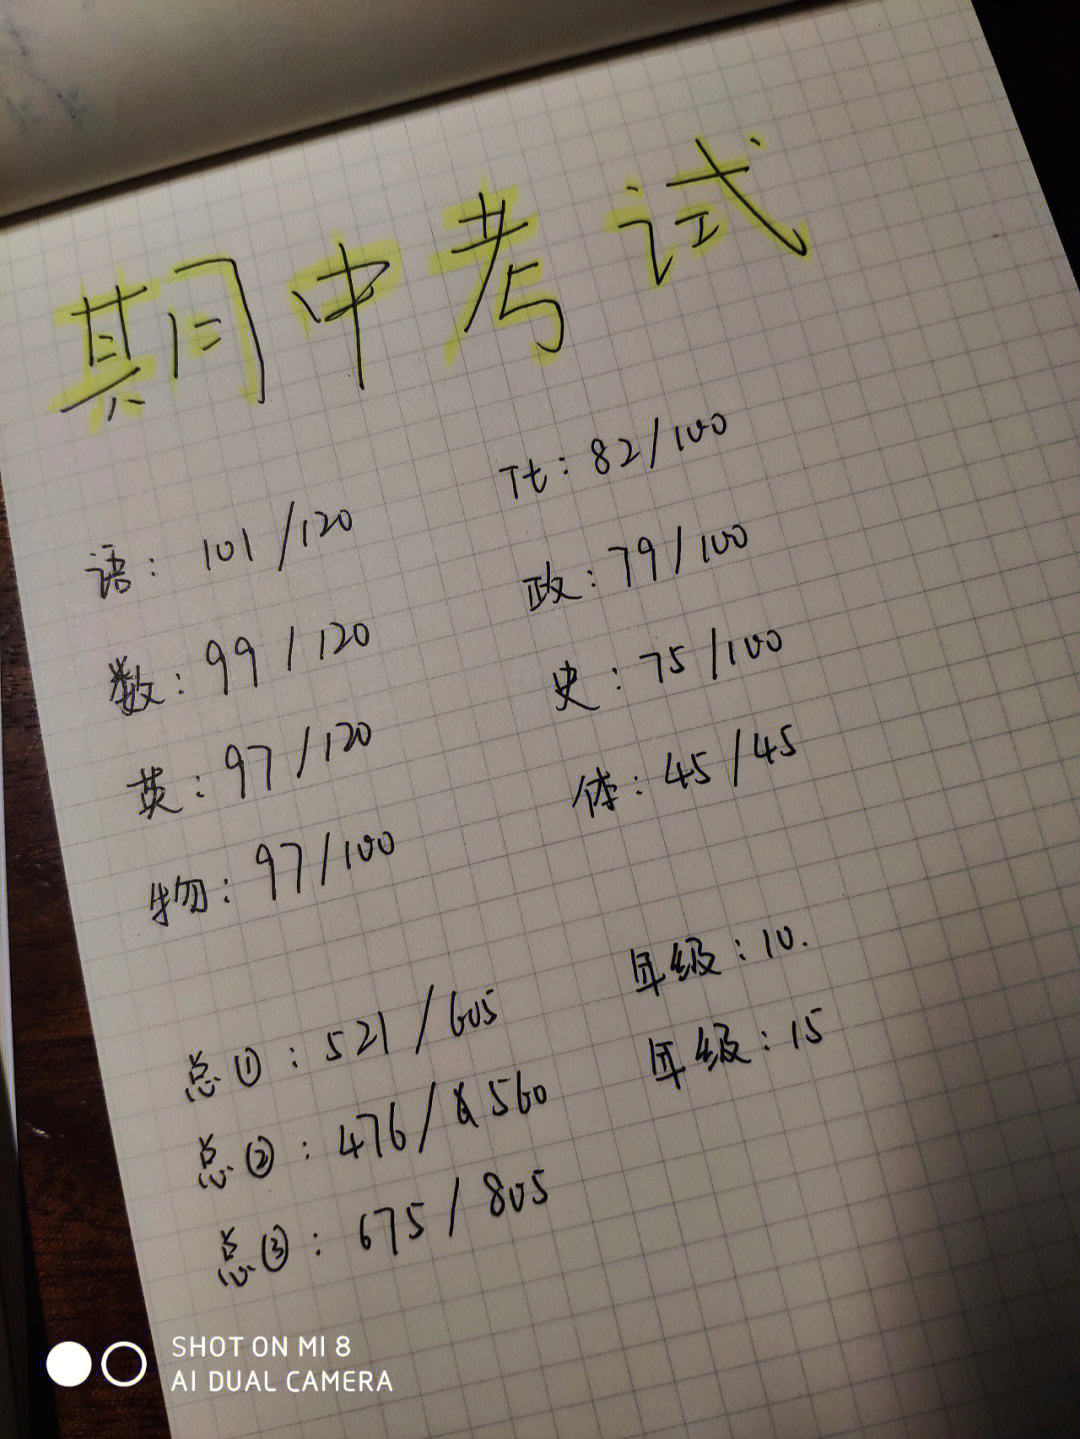 期中考试
语：101/120
数：99/120
英：97/120
物：97/100
化：82/100
政：79/100
史：75/100
体：45/45
总①：521/605 年级：10.
总②：476/560 年级：15
总③：675/805
SHOT ON MI 8
AI DUAL CAMERA